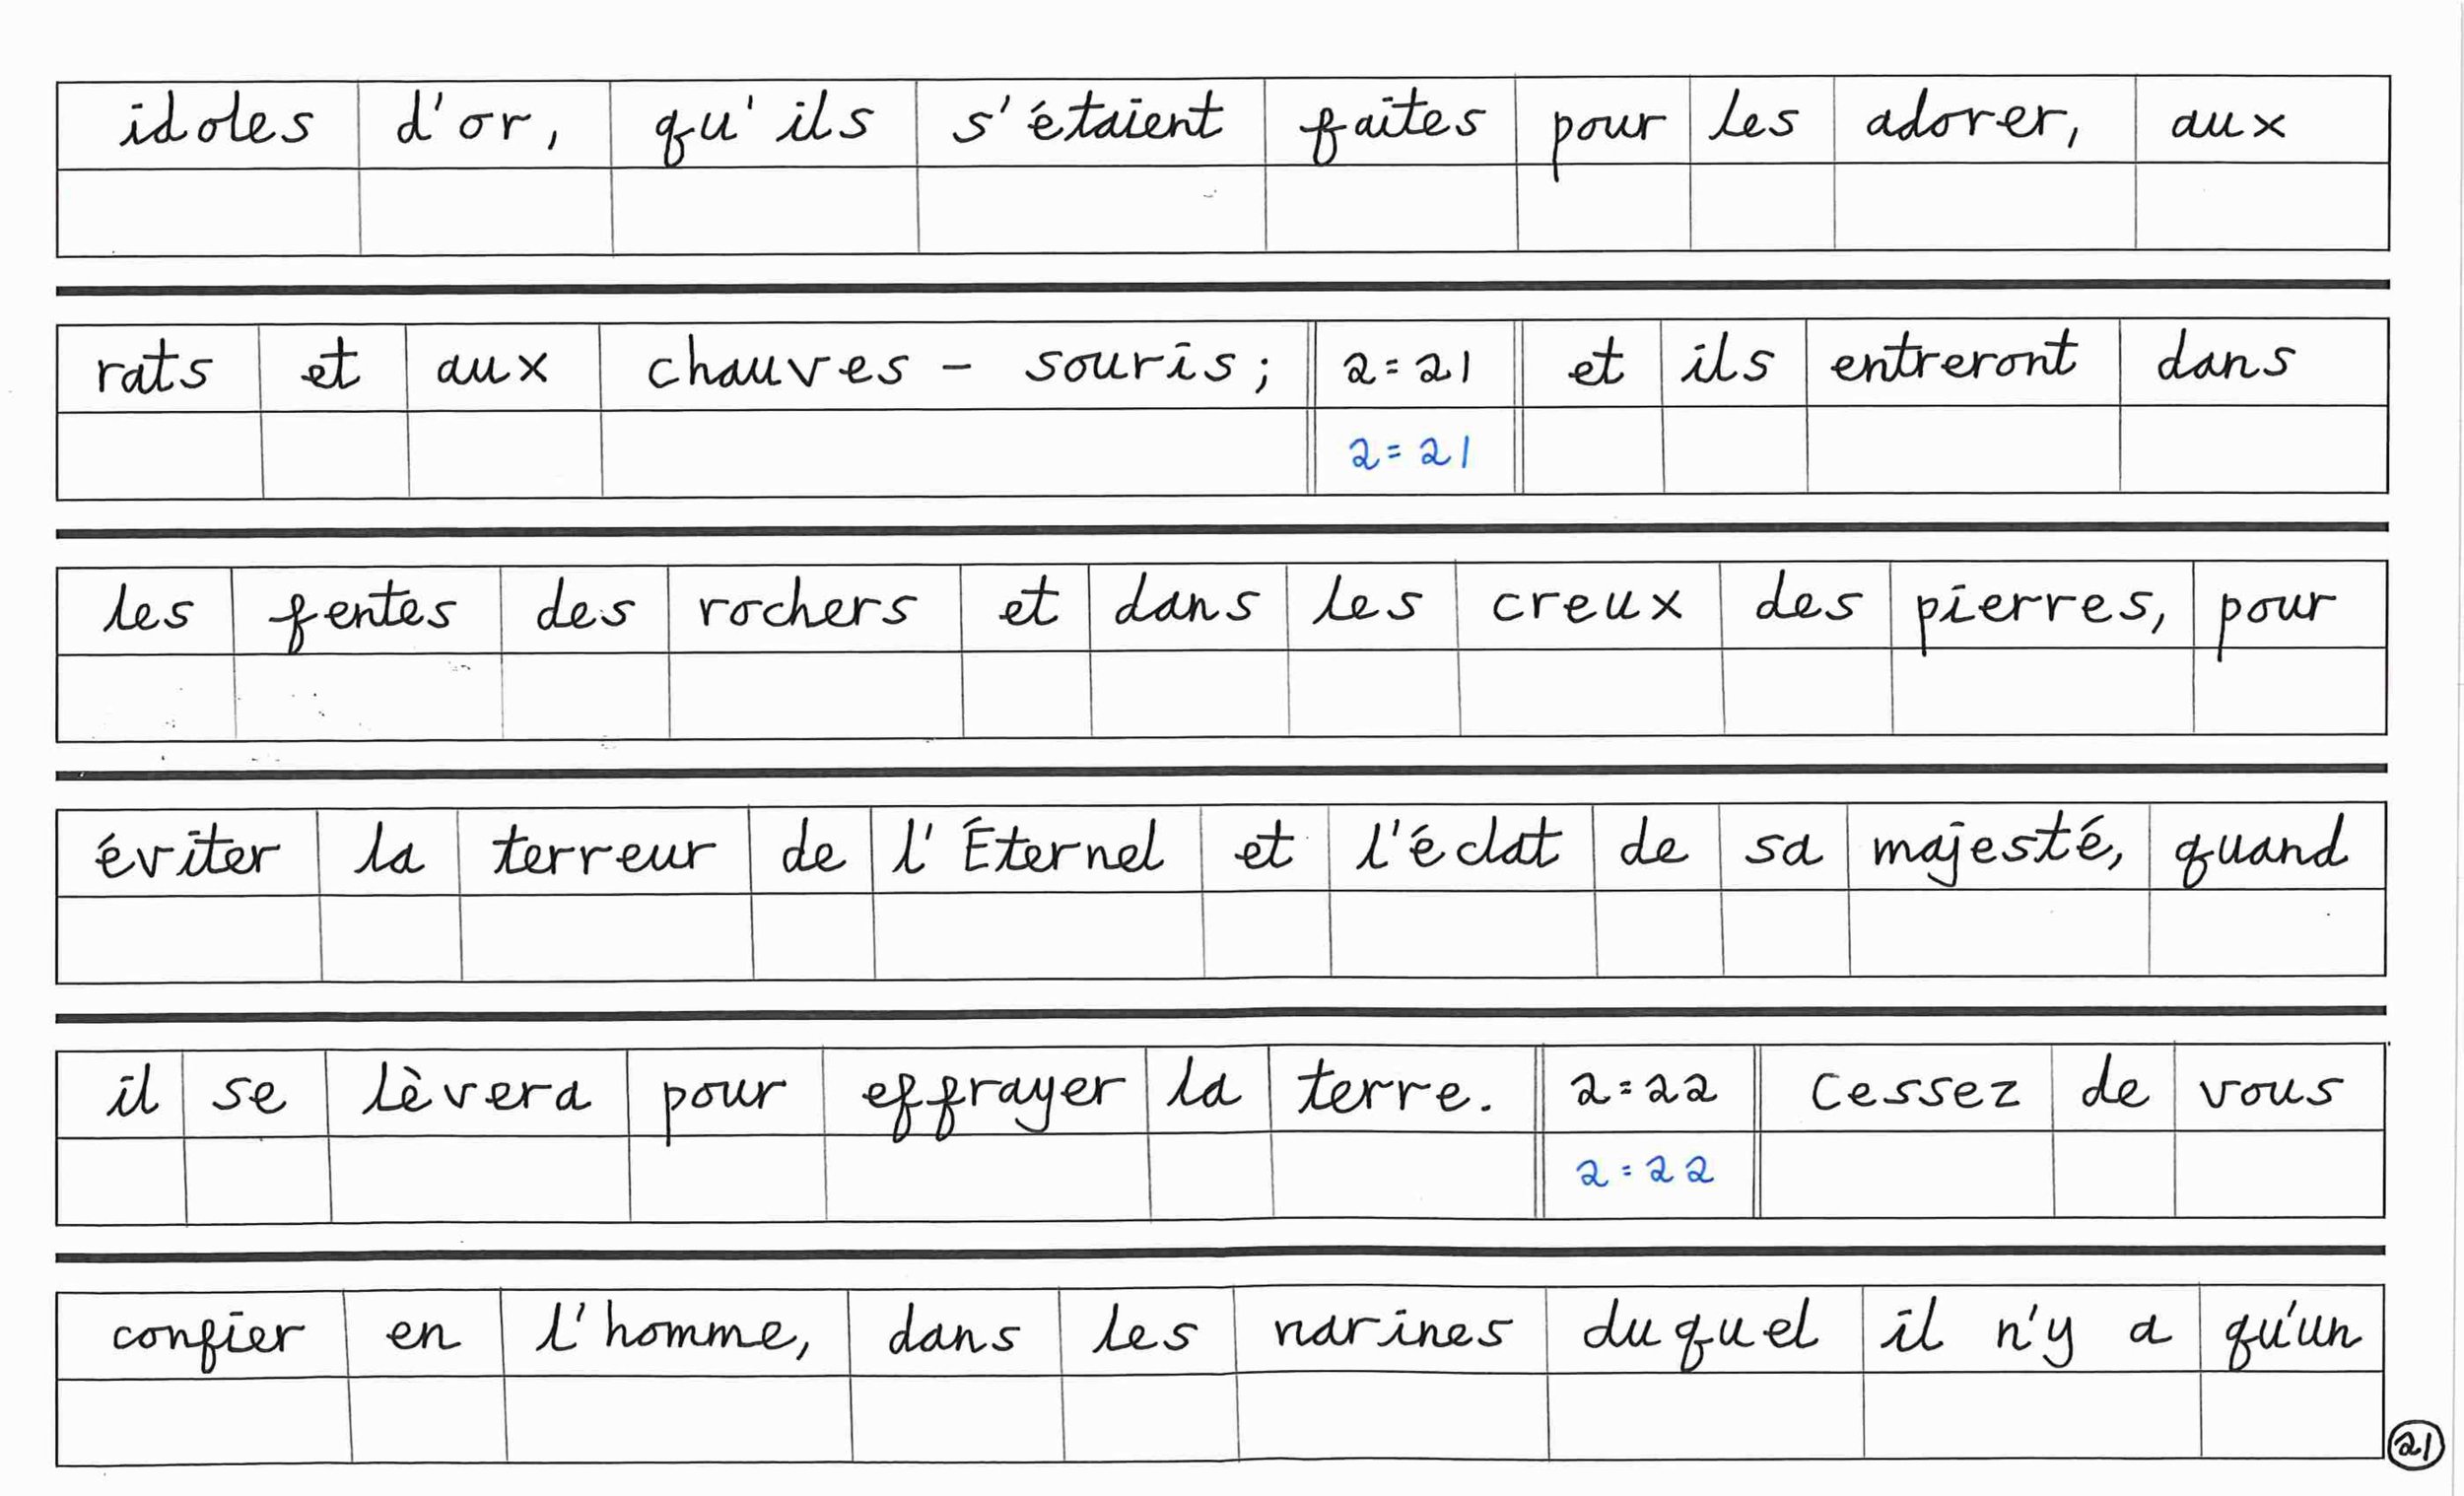 idoles d'or, qu'ils s'étaient faites pour les adorer, aux
rats et aux chauves - souris; 2=21 et ils entreront dans
2=21
les fentes des rochers et dans les creux des pierres, pour
éviter la terreur de l'Éternel et l'éclat de sa majesté, quand
il se lèvera pour effrayer la terre. 2=22 cessez de vous
2=22
confier en l'homme, dans les narines duquel il n'y a qu'un
21